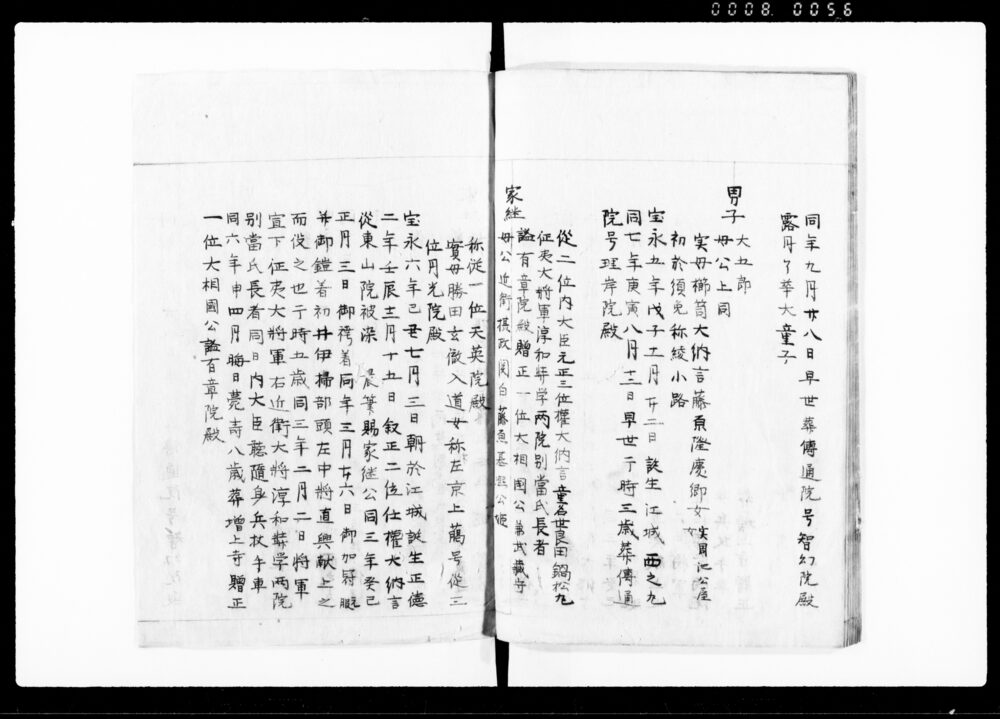 0008 0056
同年九月廿八日早世葬傳通院号智幻院殿
露月了華大童子
男子 大五郎
母公上同
実母櫛笥大納言藤原隆慶卿女 実園池公屋女
初於須免称綾小路
宝永五年戊子十二月廿二日誕生江城西之丸
同七年庚寅八月十二日早世于時三歳葬傳通
院号理岸院殿
家継 母公近衛摂政関白藤原基熙公姫
從二位内大臣元正三位權大納言童名世良田鍋松丸
征夷大将軍淳和奨学両院別當氏長者
謚有章院殿贈正一位大相國公葬武蔵守
称従一位天英院殿
實母勝田玄徹入道女称左京上﨟号従三
位月光院殿
宝永六年己丑七月三日朝於江城誕生正德
二年壬辰十二月十五日叙正二位任權大納言
從東山院被染宸筆賜家継公同三年癸巳
正月三日御袴着同年三月廿六日御加冠
并御鎧着初井伊掃部頭左中將直興献上之
而役之也于時五歳同三年二月二日将軍
宣下征夷大将軍右近衛大将淳和奨学両院
別當氏長者同日内大臣聴隨身兵杖牛車
同六年申四月晦日薨壽八歳葬増上寺贈正
一位大相國公謚有章院殿